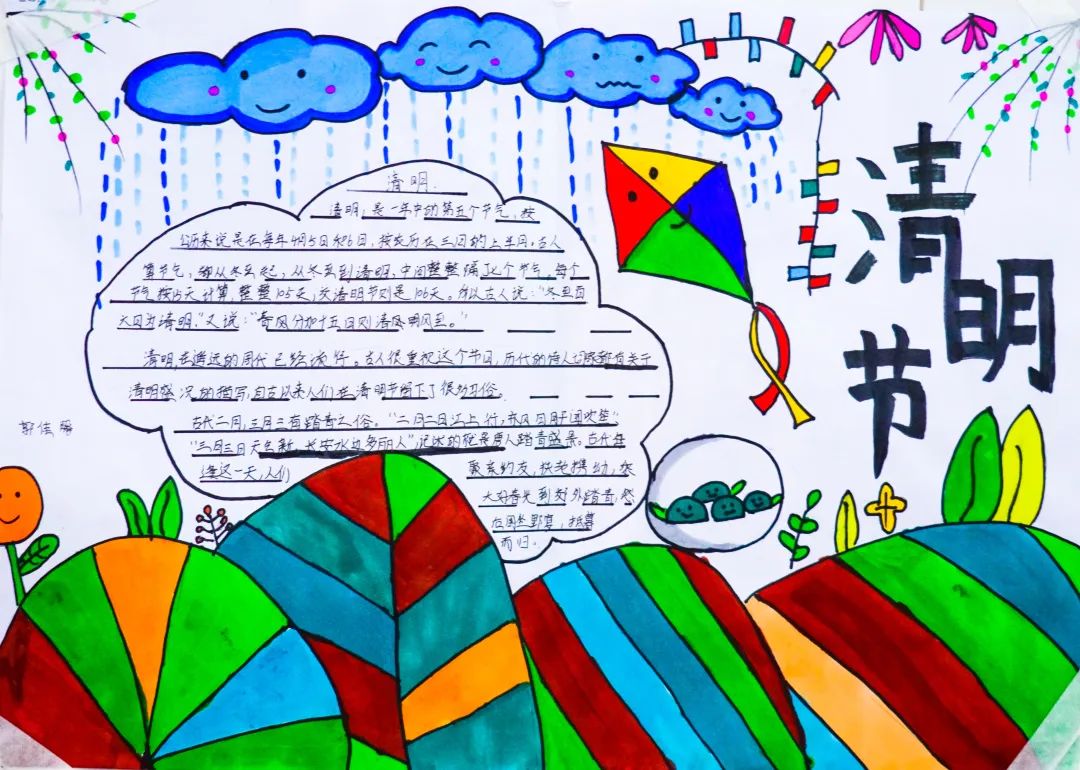 清明节
清明
清明,是一年中的第五个节气,按
公历来说是在每年4月5日和6日,按农历在三月的上半月。古人
算节气,都从冬至起,从冬至到清明,中间整整隔了七个节气。每个
节气按15天计算,整整105天,交清明节则是106天。所以古人说:"冬至百
六日为清明。"又说:"春风分加十五日则清风明风至。"
清明,在遥远的周代已经流行。古人很重视这个节日,历代的诗人都有关于
清明盛况的描写,自古以来人们在清明节留下了很的习俗。
古代二月,三月三有踏青之俗。"二月二日江上行,东风日闻吹笙"
"三月三日天气新,长安水边多丽人",记述的就是唐人踏青盛景。古代每
逢这一天,人们
聚亲约友,扶老携幼,乘
大好春光到郊外踏青,然
后围坐野宴,抵暮
而归。
郭佳